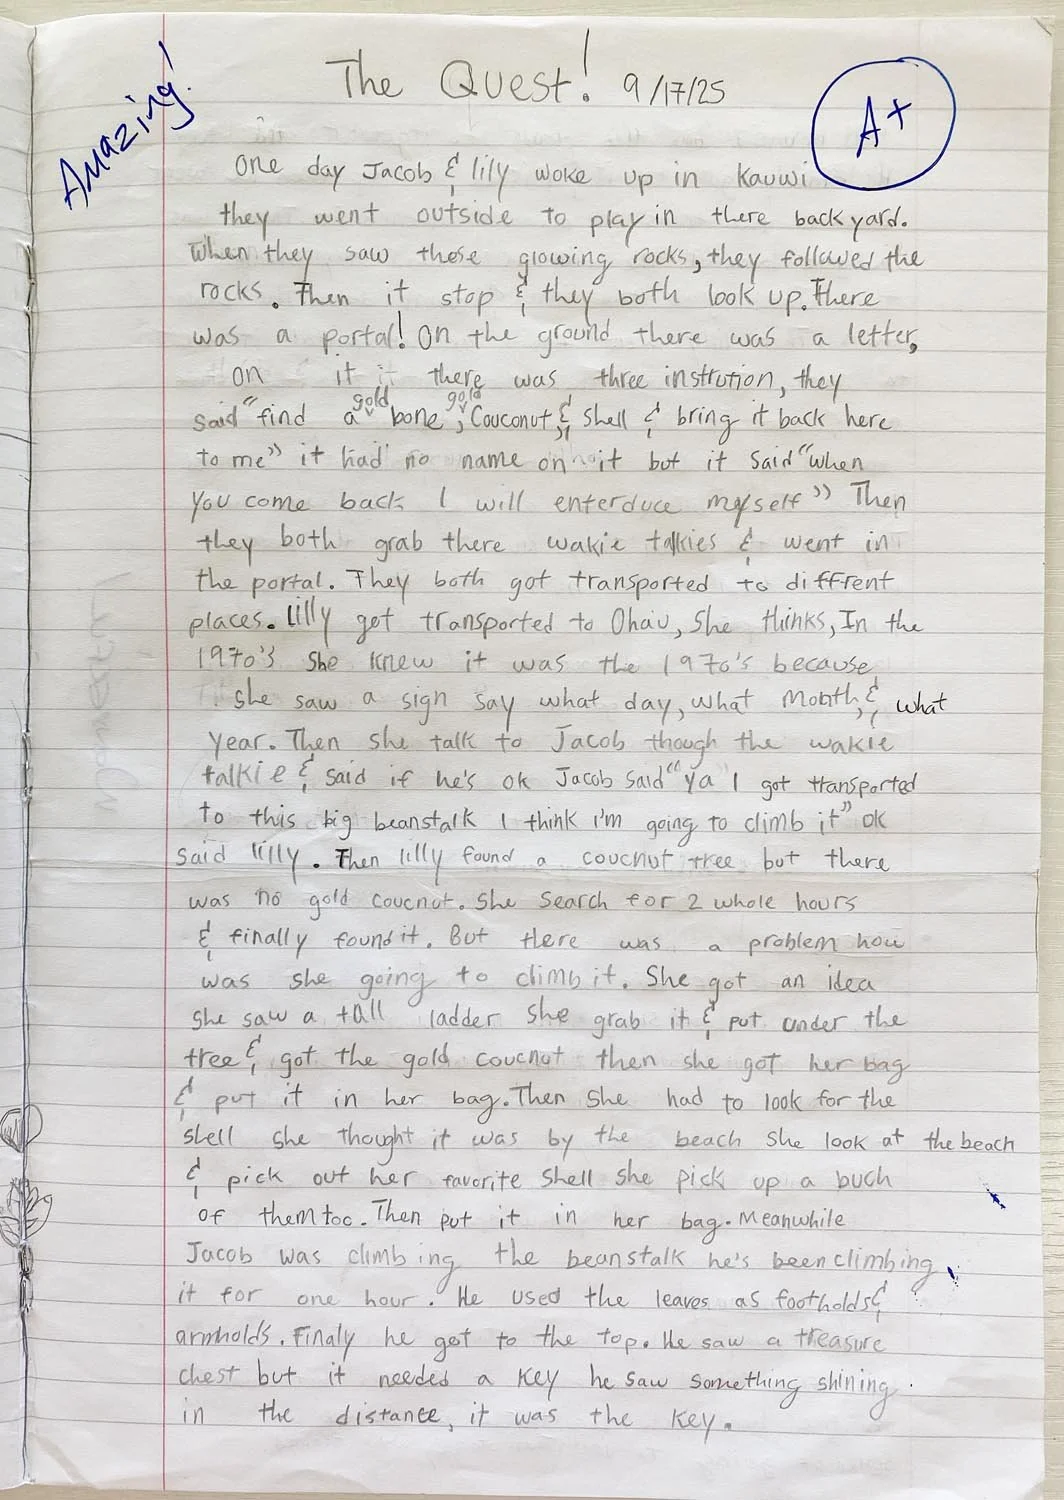 Amazing!
The Quest! 9/17/25
A+
One day Jacob & lily woke up in Kauwi
they went outside to play in there backyard.
When they saw these glowing rocks, they followed the
rocks. Then it stop & they both look up. There
was a portal! On the ground there was a letter,
on it there was three instrution, they
said "find a gold bone, gold Couconut, & Shell & bring it back here
to me" it had no name on it but it said "when
You come back I will enterduce myself" Then
they both grab there wakie talkies & went in
the portal. They both got transported to diffrent
places. Lilly got transported to Ohau, She thinks, In the
1970's She knew it was the 1970's because
She saw a sign say what day, what Month, & what
year. Then she talk to Jacob though the wakie
talkie & said if he's ok Jacob said "ya I got transported
to this big beanstalk I think I'm going to climb it" ok
said lilly. Then lilly found a coucnut tree but there
was no gold coucnot. She Search for 2 whole hours
& finally found it. But there was a problem how
was she going to climb it. She got an idea
She saw a tall ladder She grab it & put under the
tree & got the gold coucnot then she got her bag
& put it in her bag. Then She had to look for the
shell she thought it was by the beach She look at the beach
& pick out her favorite Shell she pick up a buch
of them too. Then put it in her bag. Meanwhile
Jacob was climbing the beanstalk he's been climbing
it for one hour. He used the leaves as footholds &
armholds. Finaly he got to the top. He saw a treasure
chest but it needed a key he saw something shining
in the distance, it was the key.